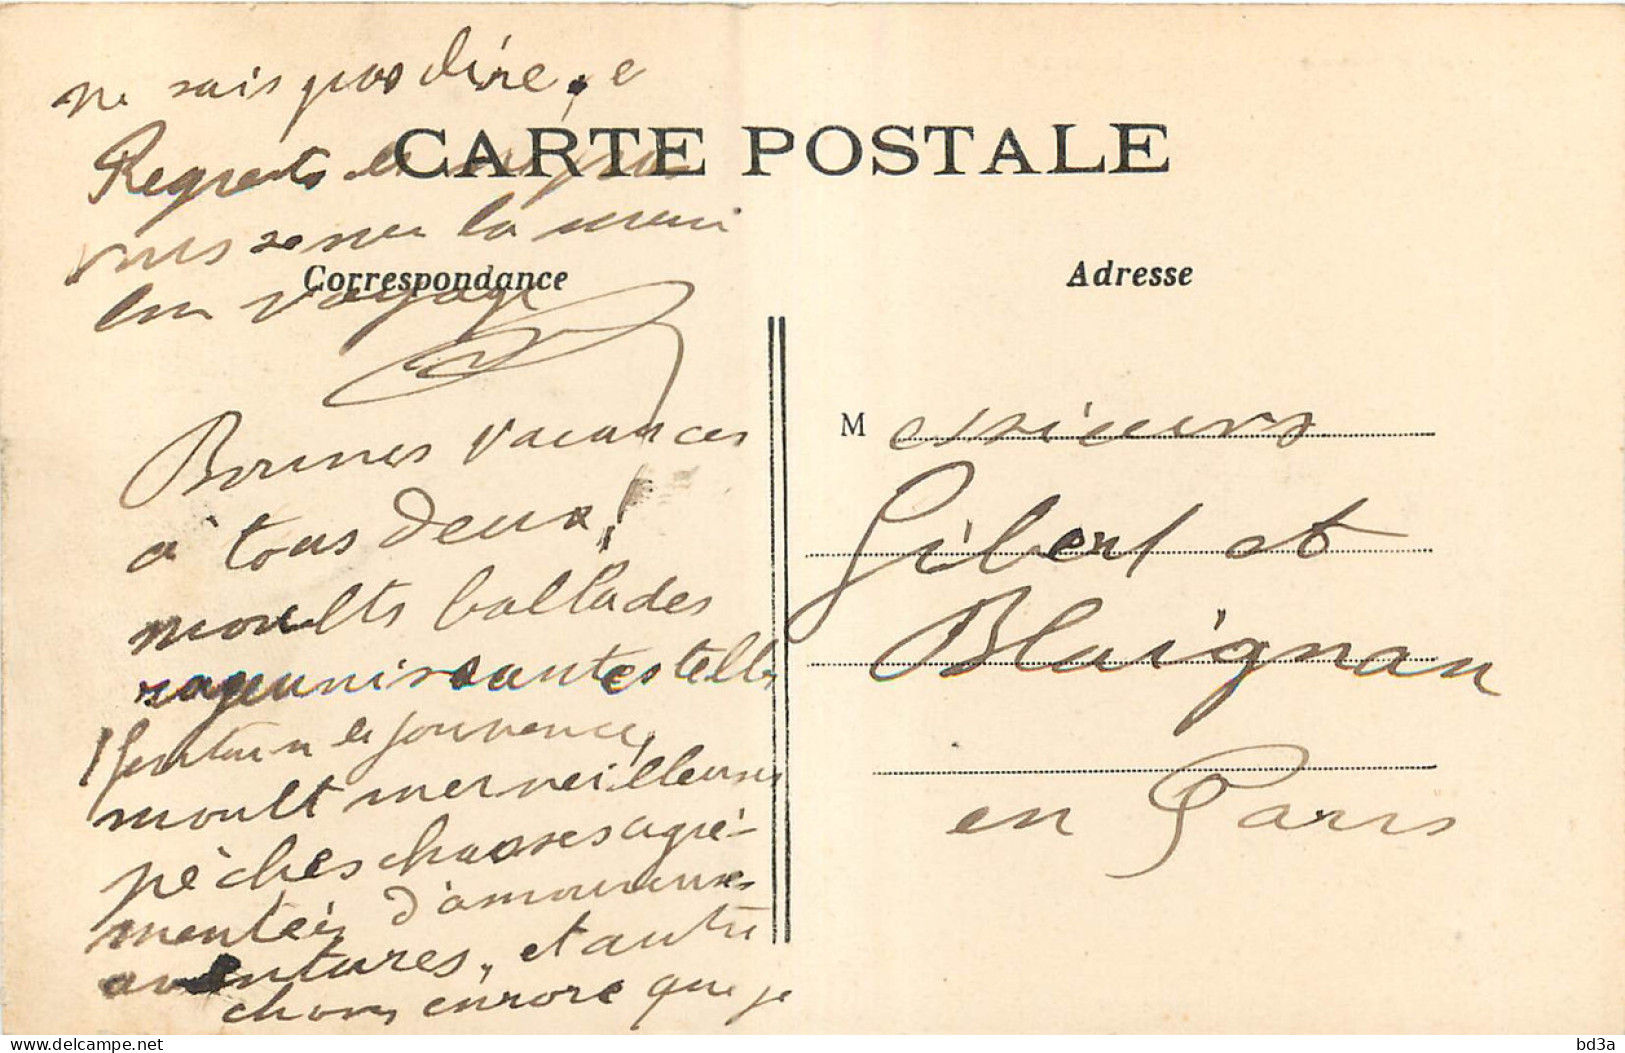 ne sais pas dire. e
Regrets de
vous serrer la main
en voyage
CARTE POSTALE
Correspondance
Adresse
Bonnes vacances
à tous deux!
moults ballades
rageunissantes telle
fontain de jouvence,
moult merveilleuses
pêches chasses agré-
mentéés d'amoureuses
aventures, et autre
chose encore que je
Messieurs
Gibert et
Blaignan
en Paris
bd3a